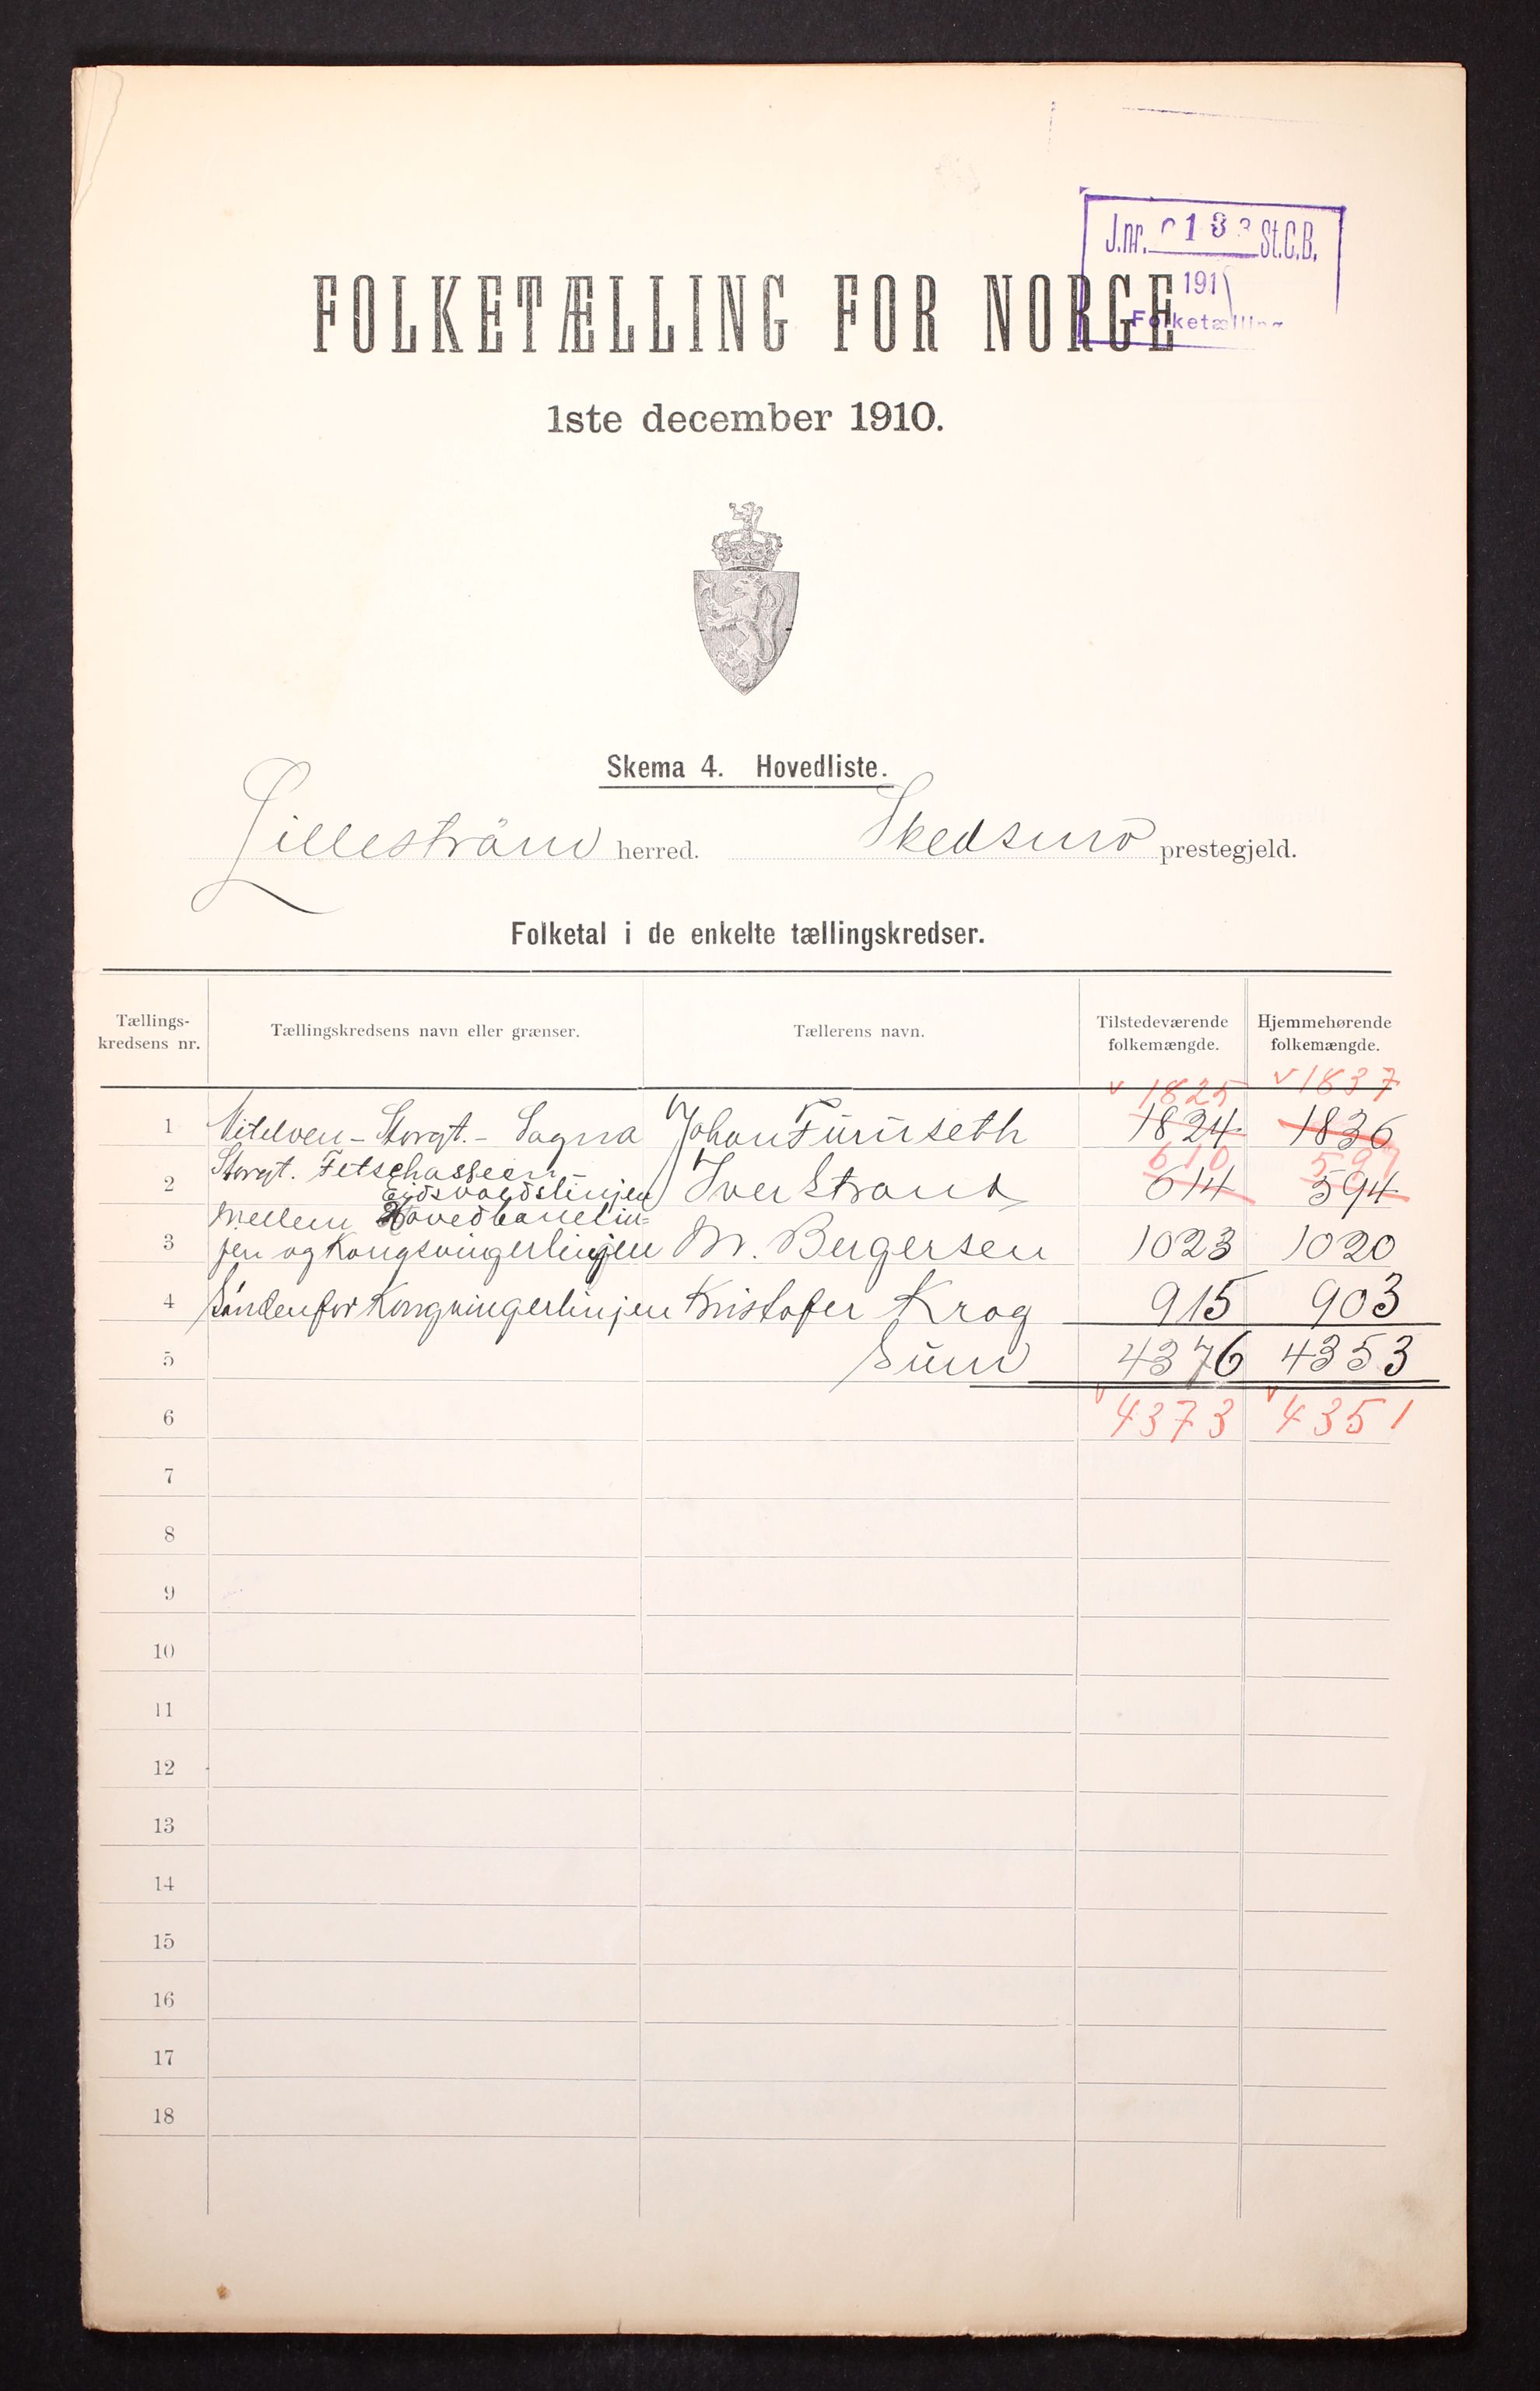 J.nr. 183 St.C.B.
191
Folketælling
FOLKETÆLLING FOR NORGE
1ste december 1910.
Skema 4. Hovedliste.
Lillestrøm herred. Skedsmo prestegjeld.
Folketal i de enkelte tællingskredser.
Tællings-
kredsens nr.
Tællingskredsens navn eller grænser.
Tællerens navn.
Tilstedeværende
folkemængde.
Hjemmehørende
folkemængde.
1825 1837
1 Nitelven - Storgt. - Sagna Johan Furuseth 1824 1836
610 597
Storgt. Fetschasseen -
2 Eidsvoldslinjen Iver Strand 614 594
Mellem Hovedbanelin=
3 jen og Kongsvingerlinjen M. Bergersen 1023 1020
4 Søndenfor Kongvingerlinjen Kristofer Krog 915 903
5 Sum 4376 4353
6 4373 4351
7
8
9
10
11
12
13
14
15
16
17
18